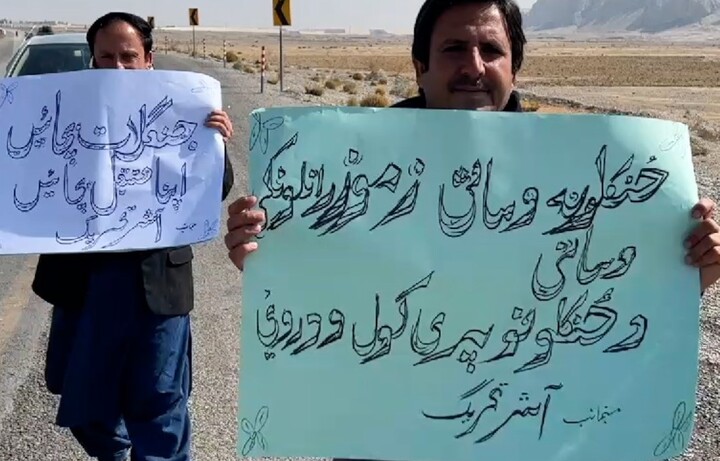 جنگلات بچائیں
اپنا مستقبل بچائیں
منجانب آشر تحریک
ځنگلونه وساتئ زموږ راتلونکی
وساتئ
د ځنگلونو پیری کول ودروئ
منجانب آشر تحریک